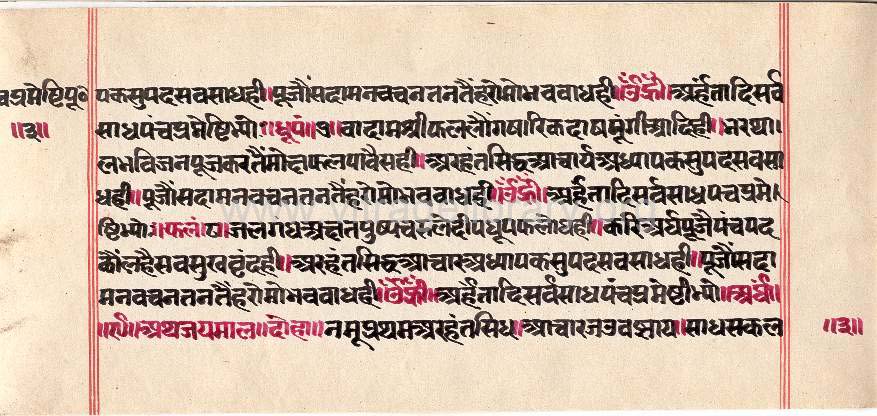 पकसुपदसवसाधही॥पूजौंसदामनवचनतनतैंहरोमोभवबाधही॥ॐह्रीं॥अर्हंतादिसर्व
साधपंचप्रमेष्टिभ्यो॥धूपं॥७॥बादामश्रीफललौंगषारिकदाषमूंगीआदिही॥भरथा।
लभविजनपूजकरतैंमोक्षफलपावैसही॥अरहंतसिद्धआचार्यअध्यापकसुपदसवसा
धही॥पूजौंसदामनवचनतनतैंहरोमोभवबाधही॥ॐह्रीं॥अर्हंतादिसर्वसाधपंचप्रमे॰
ष्टिभ्यो॥फलं॥८॥जलगंधअक्षतपुष्पचरुलेदीपधूपफलोधही॥करिअर्घपूजैपंचपद
कौंलहैसवसुखवृंदही॥अरहंतसिद्धआचारअध्यापकसुपदसवसाधही॥पूजौंसदा
मनवचनतनतैंहरोमोभवबाधही॥ॐह्रीं॥अर्हंतादिसर्वसाधपंचप्रमेष्टीभ्यो॥अर्घं॥
॥९॥अथजयमाल॥दोहा॥नमूप्रथमअरहंतसिध॥आचारजउवझाय॥साधसकल
॥३॥
॥३॥
www.vitragelibrary.org